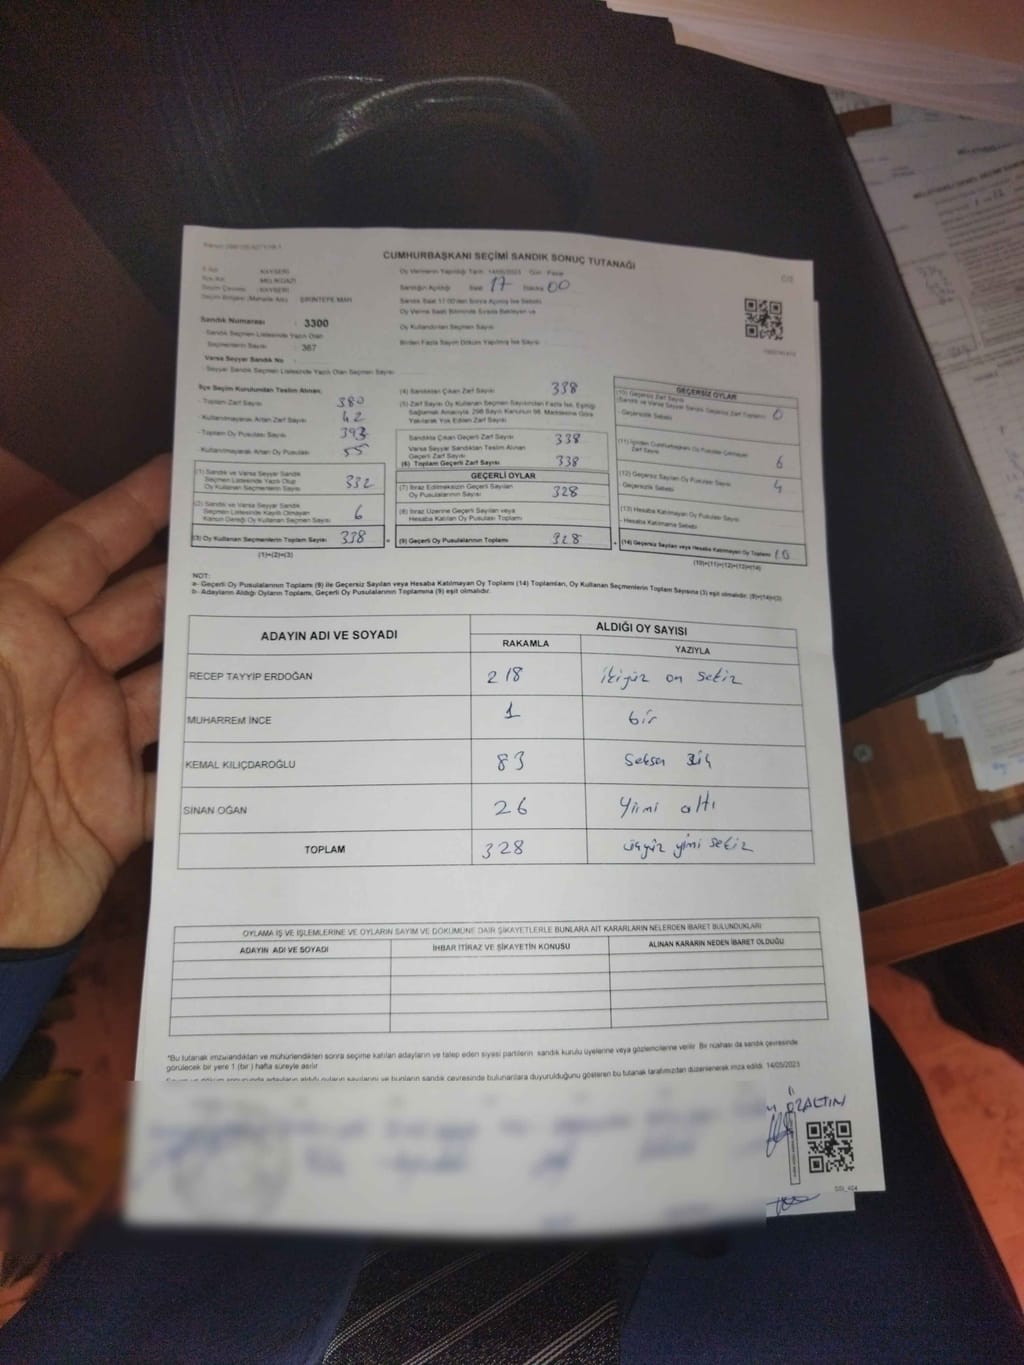 CUMHURBAŞKANI SEÇİMİ SANDIK SONUÇ TUTANAĞI
C/2
İl Adı : KAYSERİ
: MELİKGAZİ
Seçim Çevresi : KAYSERİ
Seçim Bölgesi (Mahalle Adı) : ŞİRİNTEPE MAH
Oy Vermenin Yapıldığı Tarih: 14/05/2023 Gün: Pazar
Sandığın Açıldığı Saat 17 Dakika 00
Oy Kullandırılan Seçmen Sayısı
Birden Fazla Sayım Döküm Yapılmış İse Sayısı
Sandık Numarası : 3300
Sandık Seçmen Listesinde Yazılı Olan
Seçmenlerin Sayısı : 367
Varsa Seyyar Sandık No :
Seyyar Sandık Seçmen Listesinde Yazılı Olan Seçmen Sayısı :
İlçe Seçim Kurulundan Teslim Alınan;
- Toplam Zarf Sayısı 380
- Kullanılmayarak Artan Zarf Sayısı 42
- Toplam Oy Pusulası Sayısı 393
- Kullanılmayarak Artan Oy Pusulası 55
(1) Sandık ve Varsa Seyyar Sandık
Seçmen Listesinde Yazılı Olup
Oy Kullanan Seçmenlerin Sayısı 332
(2) Sandık ve Varsa Seyyar Sandık
Seçmen Listesinde Kayıtlı Olmayan
Kanun Gereği Oy Kullanan Seçmen Sayısı 6
(3) Oy Kullanan Seçmenlerin Toplam Sayısı 338
(1)+(2)=(3)
(4) Sandıktan Çıkan Zarf Sayısı 338
(5) Zarf Sayısı Oy Kullanan Seçmen Sayısından Fazla İse, Eşitliği
Sağlamak Amacıyla, 298 Sayılı Kanunun 98. Maddesine Göre
Yakılarak Yok Edilen Zarf Sayısı
Sandıkta Çıkan Geçerli Zarf Sayısı 338
Varsa Seyyar Sandıktan Teslim Alınan
Geçerli Zarf Sayısı
(6) Toplam Geçerli Zarf Sayısı 338
GEÇERLİ OYLAR
(7) İtiraz Edilmeksizin Geçerli Sayılan
Oy Pusulalarının Sayısı 328
(8) İtiraz Üzerine Geçerli Sayılan veya
Hesaba Katılan Oy Pusulası Toplamı
(9) Geçerli Oy Pusulalarının Toplamı 328
GEÇERSİZ OYLAR
(10) Geçersiz Zarf Sayısı
(Sandık ve Varsa Seyyar Sandık Geçersiz Zarf Toplamı) 0
- Geçersizlik Sebebi
(11) İçinden Cumhurbaşkanı Oy Pusulası Çıkmayan
Zarf Sayısı 6
(12) Geçersiz Sayılan Oy Pusulası Sayısı 4
- Geçersizlik Sebebi
(13) Hesaba Katılmayan Oy Pusulası Sayısı
- Hesaba Katılmama Sebebi
(14) Geçersiz Sayılan veya Hesaba Katılmayan Oy Toplamı 10
(10)+(11)+(12)+(13)=(14)
NOT:
a- Geçerli Oy Pusulalarının Toplamı (9) ile Geçersiz Sayılan veya Hesaba Katılmayan Oy Toplamı (14) Toplamları, Oy Kullanan Seçmenlerin Toplam Sayısına (3) eşit olmalıdır. (9)+(14)=(3)
b- Adayların Aldığı Oyların Toplamı, Geçerli Oy Pusulalarının Toplamına (9) eşit olmalıdır.
ADAYIN ADI VE SOYADI
ALDIĞI OY SAYISI
RAKAMLA YAZIYLA
RECEP TAYYİP ERDOĞAN 218 ikiyüz on sekiz
MUHARREM İNCE 1 bir
KEMAL KILIÇDAROĞLU 83 Seksen üç
SİNAN OĞAN 26 yirmi altı
TOPLAM 328 üçyüz yirmi sekiz
OYLAMA İŞ VE İŞLEMLERİNE VE OYLARIN SAYIM VE DÖKÜMÜNE DAİR ŞİKAYETLERLE BUNLARA AİT KARARLARIN NELERDEN İBARET BULUNDUKLARI
ADAYIN ADI VE SOYADI İHBAR İTİRAZ VE ŞİKAYETİN KONUSU ALINAN KARARIN NEDEN İBARET OLDUĞU
*Bu tutanak imzalandıktan ve mühürlendikten sonra seçime katılan adayların ve talep eden siyasi partilerin sandık kurulu üyelerine veya gözlemcilerine verilir. Bir nüshası da sandık çevresinde
görülecek bir yere 1 (bir) hafta süreyle asılır
Sayım ve döküm sonucunda adayların aldığı oyların sayılarını ve bunların sandık çevresinde bulunanlara duyurulduğunu gösteren bu tutanak tarafımızdan düzenlenerek imza edildi. 14/05/2023
ÖZALTIN